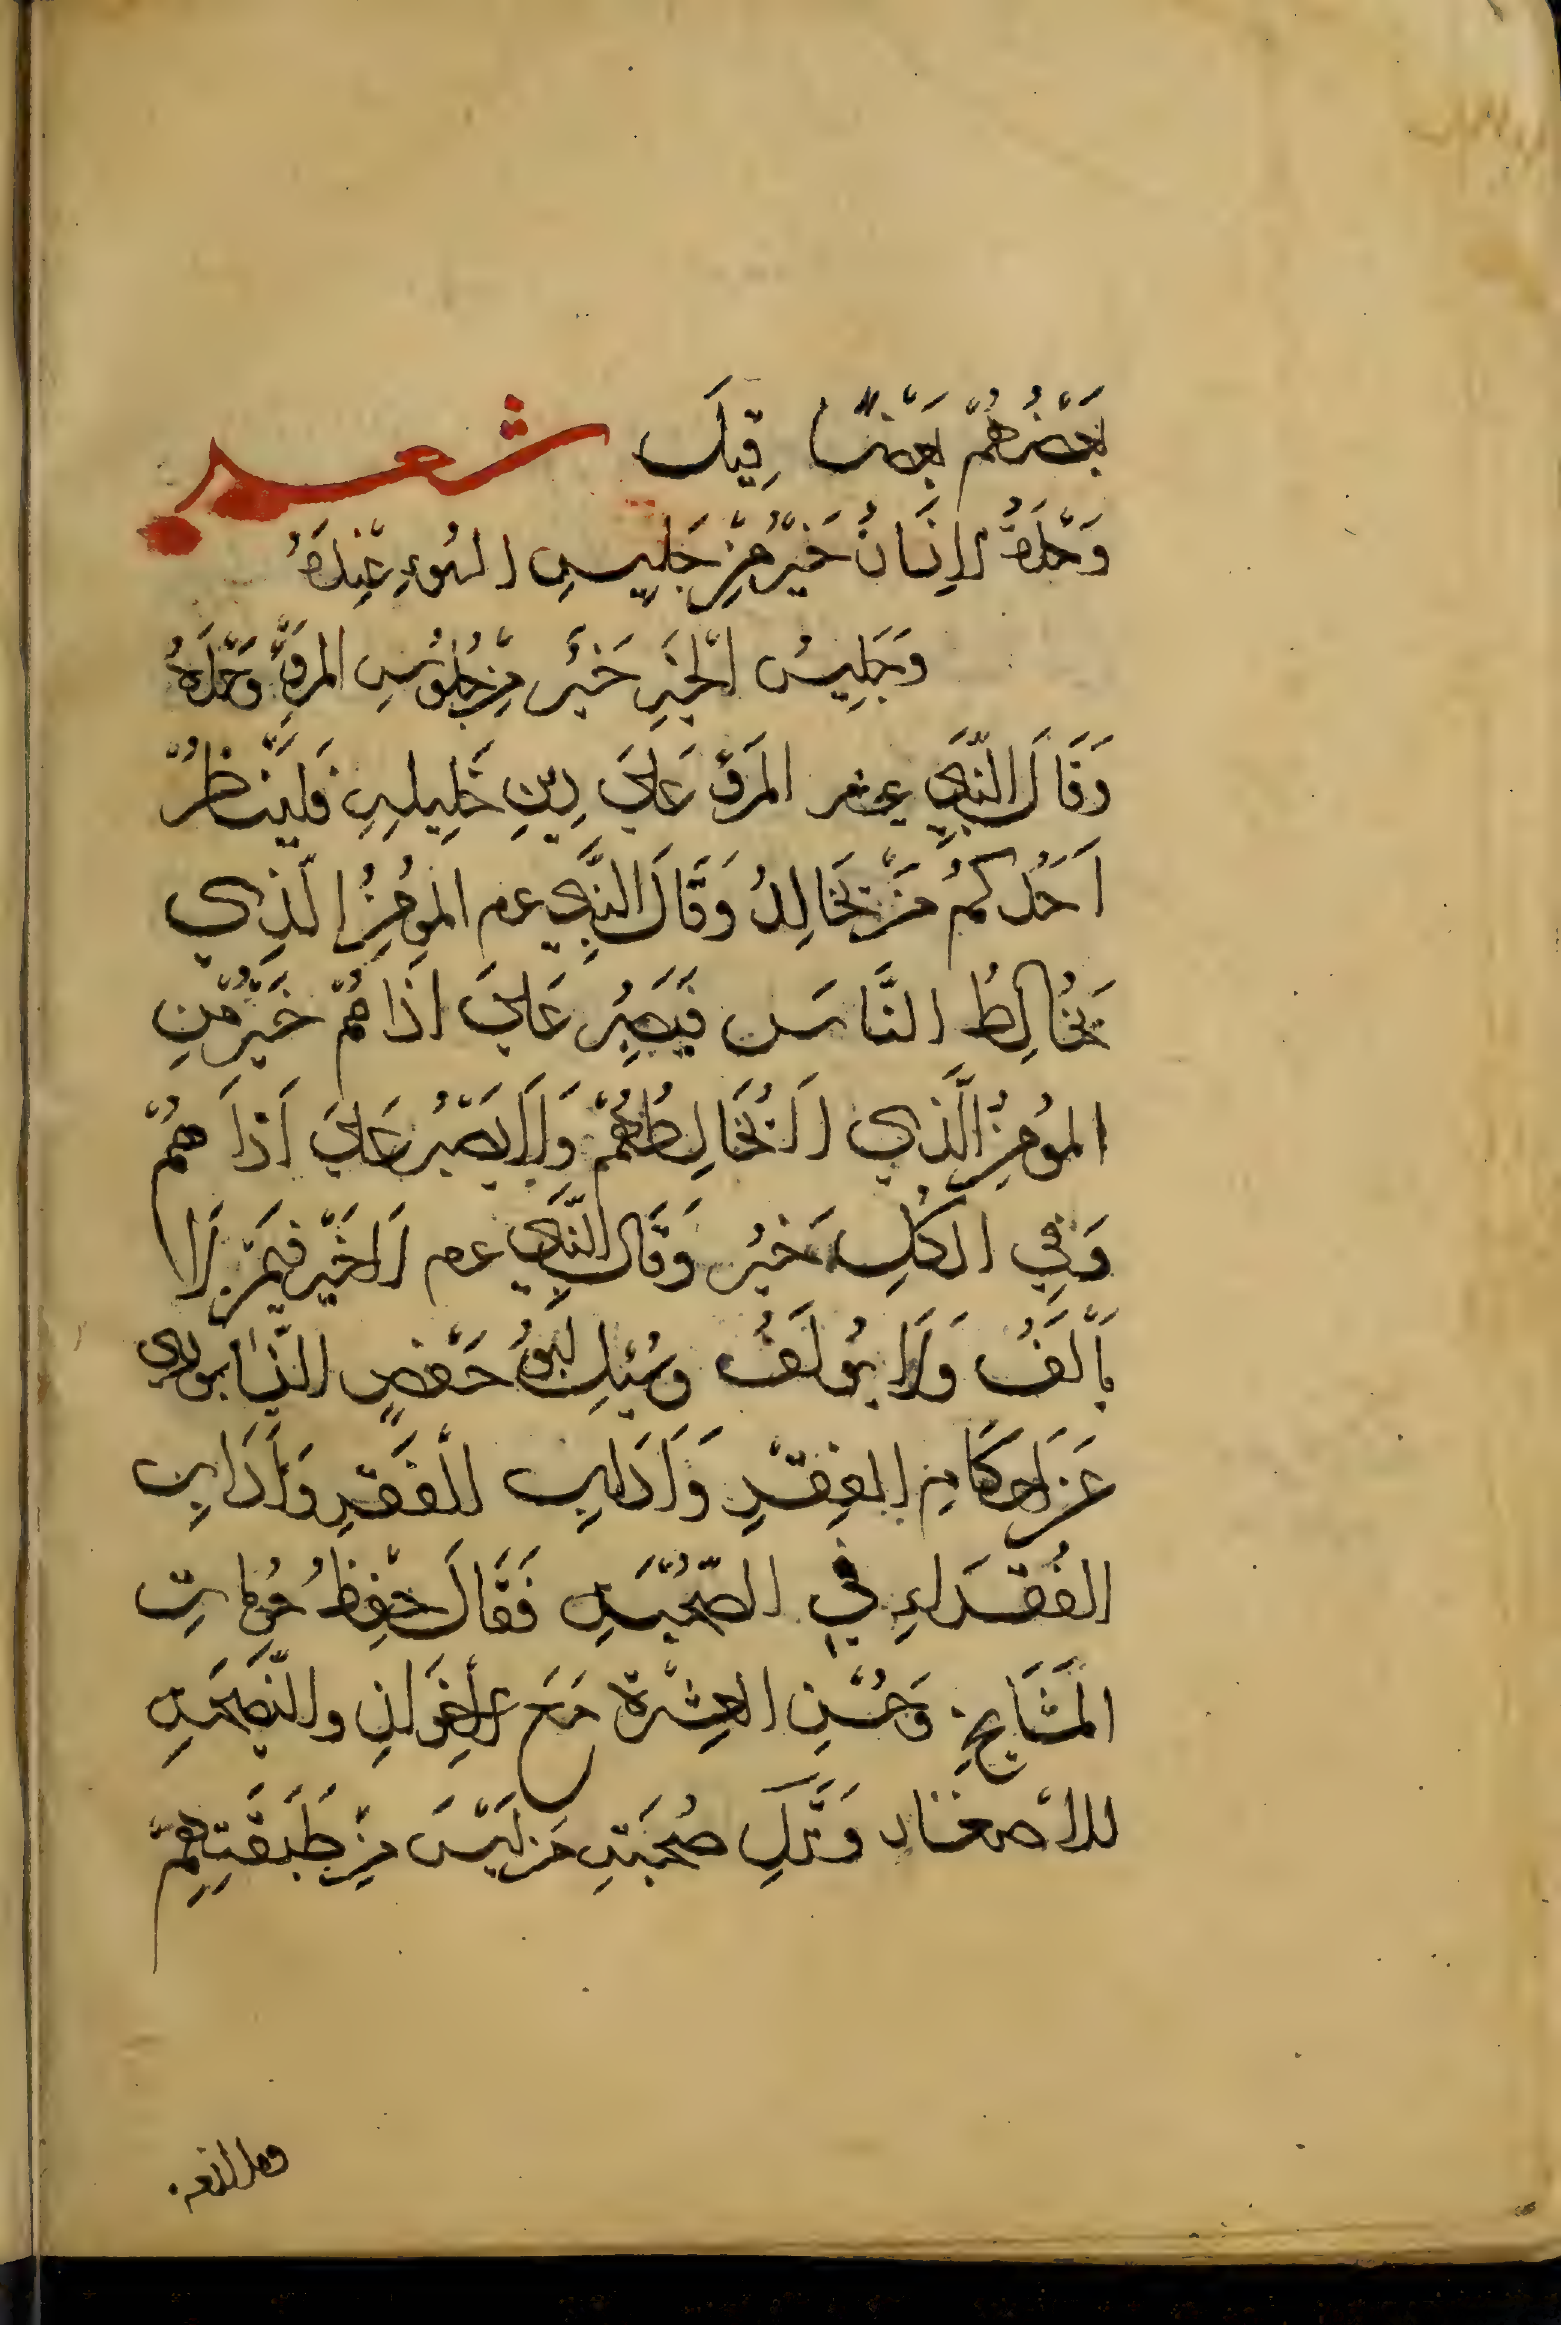 بَعْضُهُمْ بَعْضًا قِيلَ شعر
وَحْدَةُ الاِنسَانُ خَيْرٌ مِنْ جَلِيسِ السُوءِ عِنْدَهُ
وَجَلِيسُ الْخَيرِ خَيْرٌ مِنْ جُلُوسِ المَرءِ وَحْدَهُ
وَقَالَ النَّبِي عم المَرءُ عَلَي دِينِ خَلِيلِهِ فَلْيَنْظُرْ
اَحَدُكُمْ مَنْ يُخَالِلُ وَقَالَ النَّبِي عم المُومِنُ الَّذِي
يُخَالِطُ النَّاسَ فَيَصْبِرُ عَلَي اَذَاهُمْ خَيْرٌ مِن
المُومِنِ الَّذِي لَا يُخَالِطُهُمْ وَلَا يَصْبِرُ عَلَي اَذَاهُمْ
وَفِي الكُلِ خَيرٌ وَقَالَ النَّبِي عم لَاخَيْرَ فِيمَنْ لَا
يَأْلَفُ وَلَا يُولَفُ وسُئِلَ اَبُو حَفْصٍ النيسابوري
عَن اَحكَامِ الفِقْرِ وَاَدَابِ الْفَقْرِ وَاَدَابِ
الفُقَرَاءِ فِي الصُّحْبَةِ فَقَالَ حِفظُ حُرُمَاتِ
الْمَشَايخِ وَحُسْنِ العِشْرَة مَعَ الاِخْوَانِ والنَّصِيحَةِ
للاَصْغَارِ وَتَركِ صُحْبَةِ مَن لَيْسَ مِنْ طَبَقَتِهِمْ